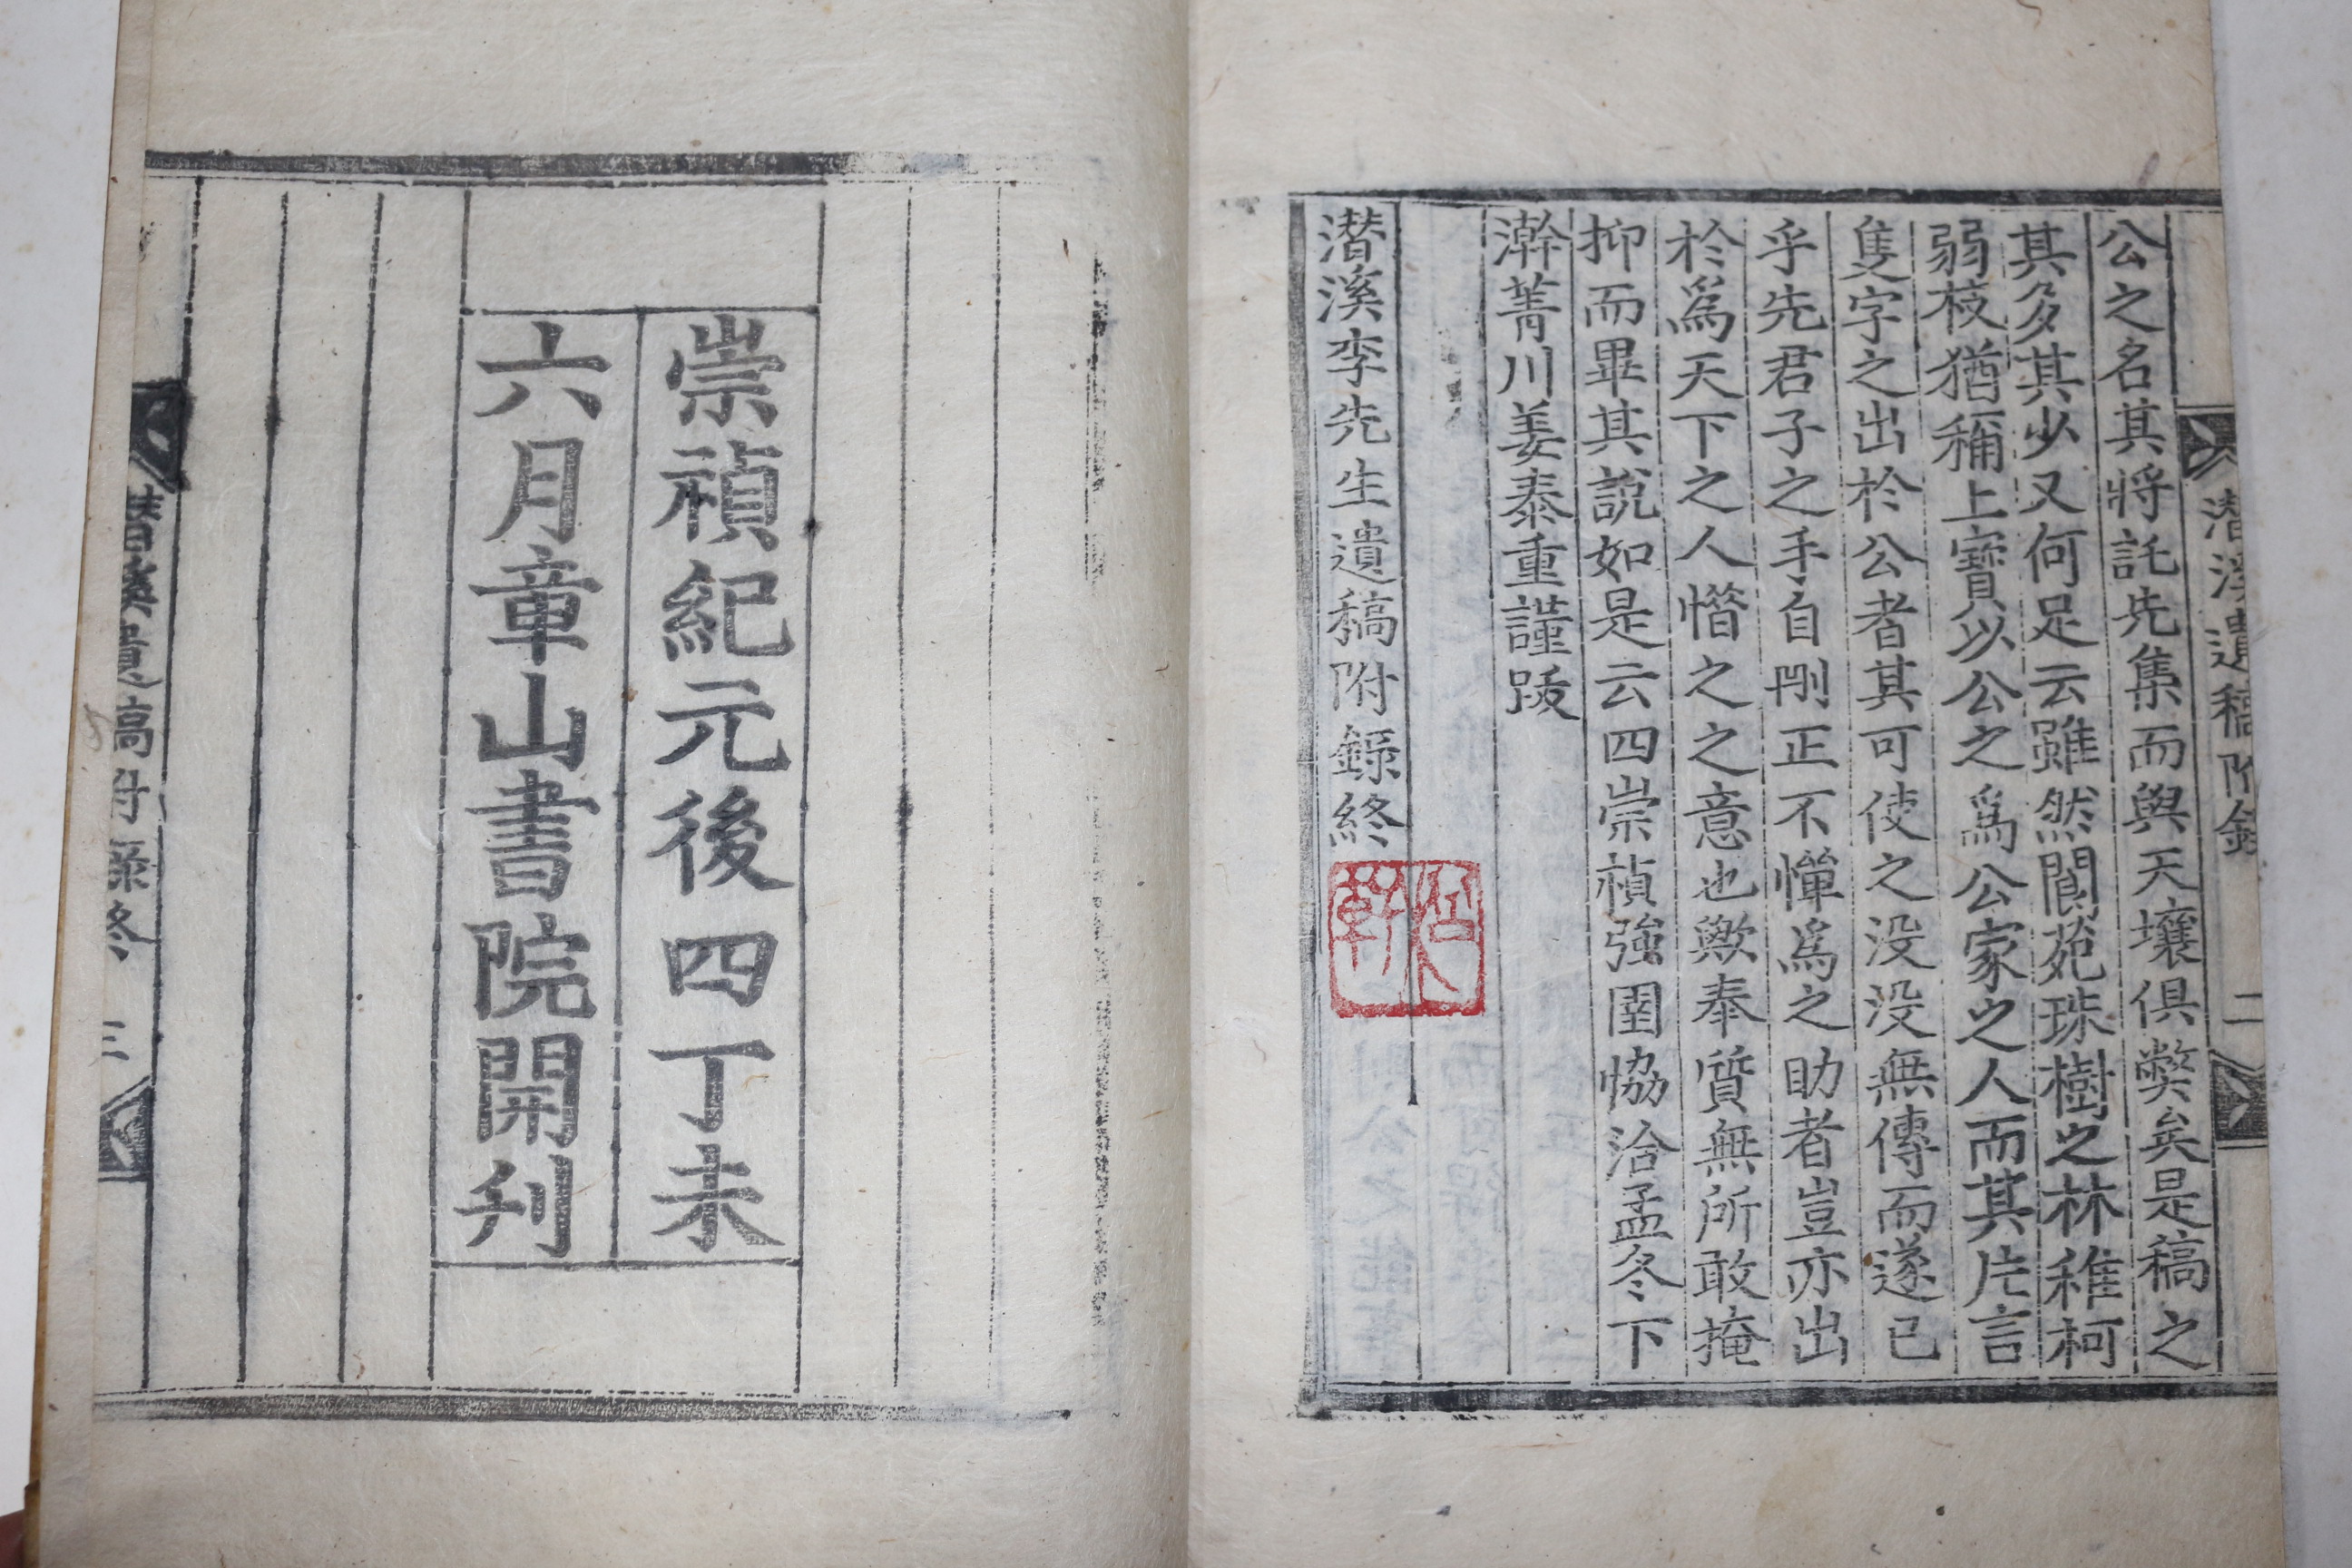 潜溪遺稿附錄
二
公之名其將託先集而與天壤俱弊矣是稿之
其多其少又何足云雖然閬苑珠樹之林稚柯
弱枝猶稱上寶以公之爲公家之人而其片言
隻字之出於公者其可使之没没無傳而遂已
乎先君子之手自刪正不憚爲之助者豈亦出
於爲天下之人惜之之意也歟奉質無所敢掩
抑而畢其說如是云四崇禎強圉恊洽孟冬下
澣菁川姜泰重謹跋
潜溪李先生遺稿附錄終
崇禎紀元後四丁未
六月章山書院開刋
潜溪遺稿附錄終
三